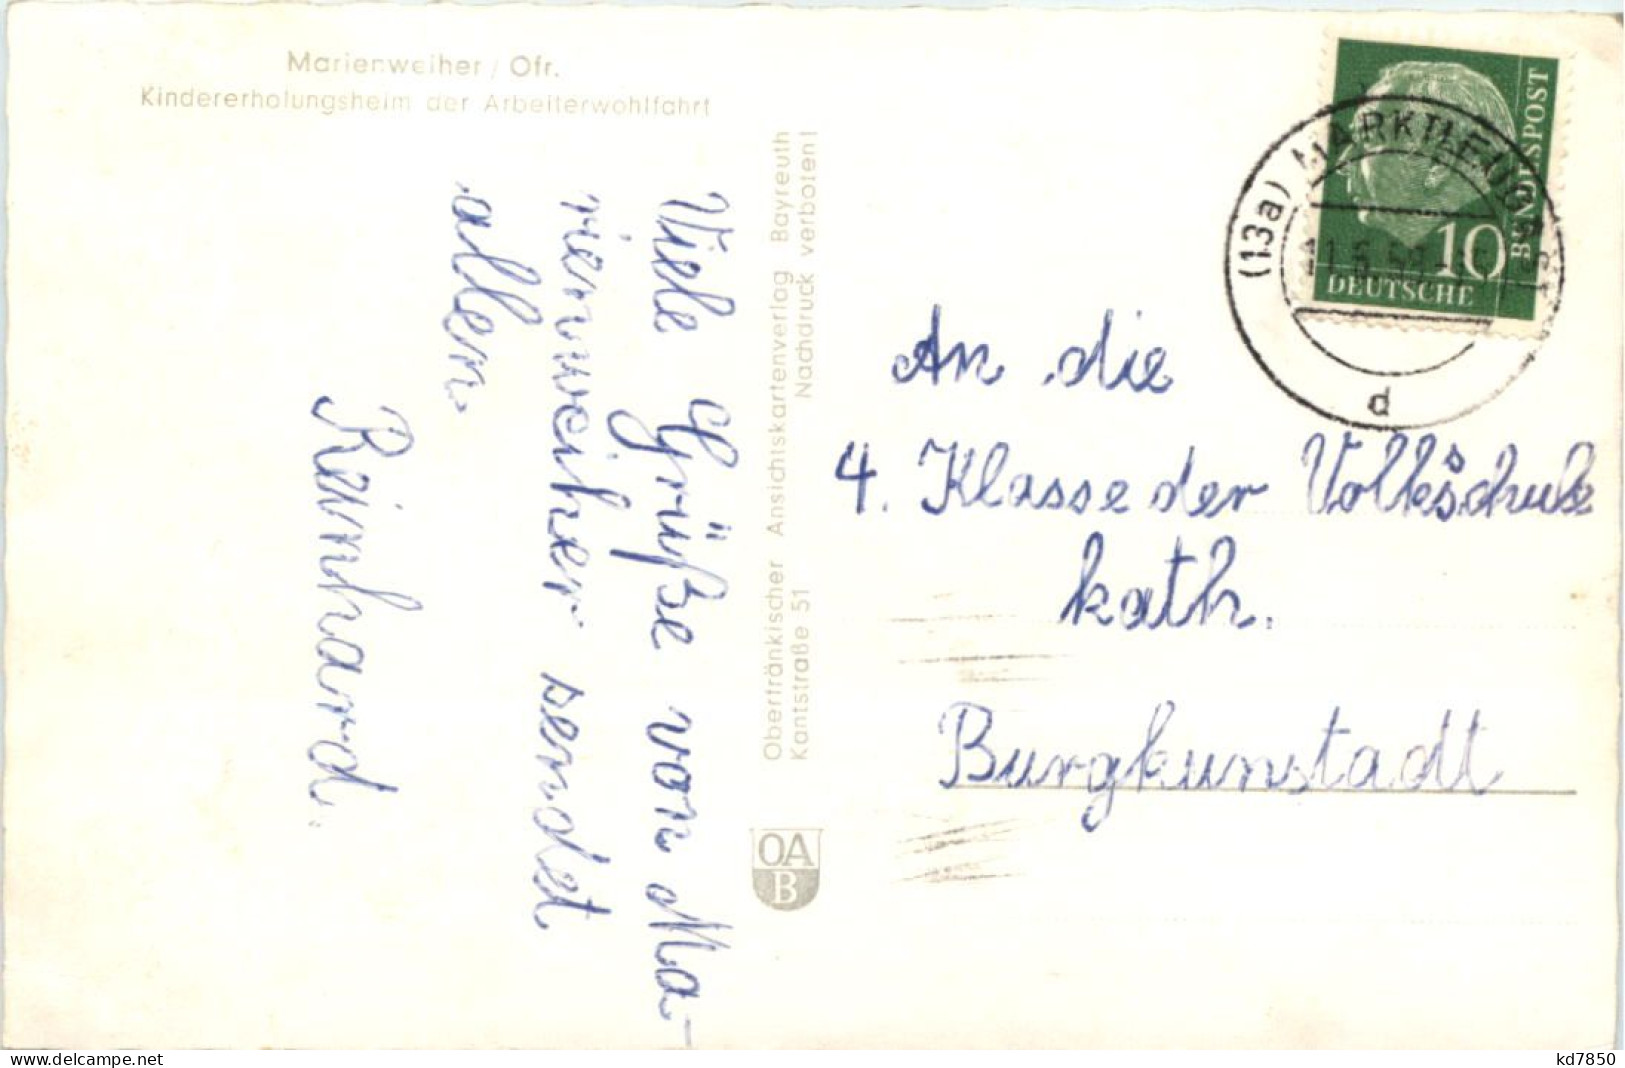 Marienweiher / Ofr.
Kindererholungsheim der Arbeiterwohlfahrt
Viele Grüße von Ma-
rienweiher sendet
allen
Reinhard.
Oberfränkischer Ansichtskartenverlag Bayreuth
Kantstraße 51 Nachdruck verboten!
OA
B
(13a) MARKTLEUGAST
d
10
DEUTSCHE
BUNDESPOST
An die
4. Klasse der Volksschule
kath.
Burgkunstadt
www.delcampe.net
kd7850